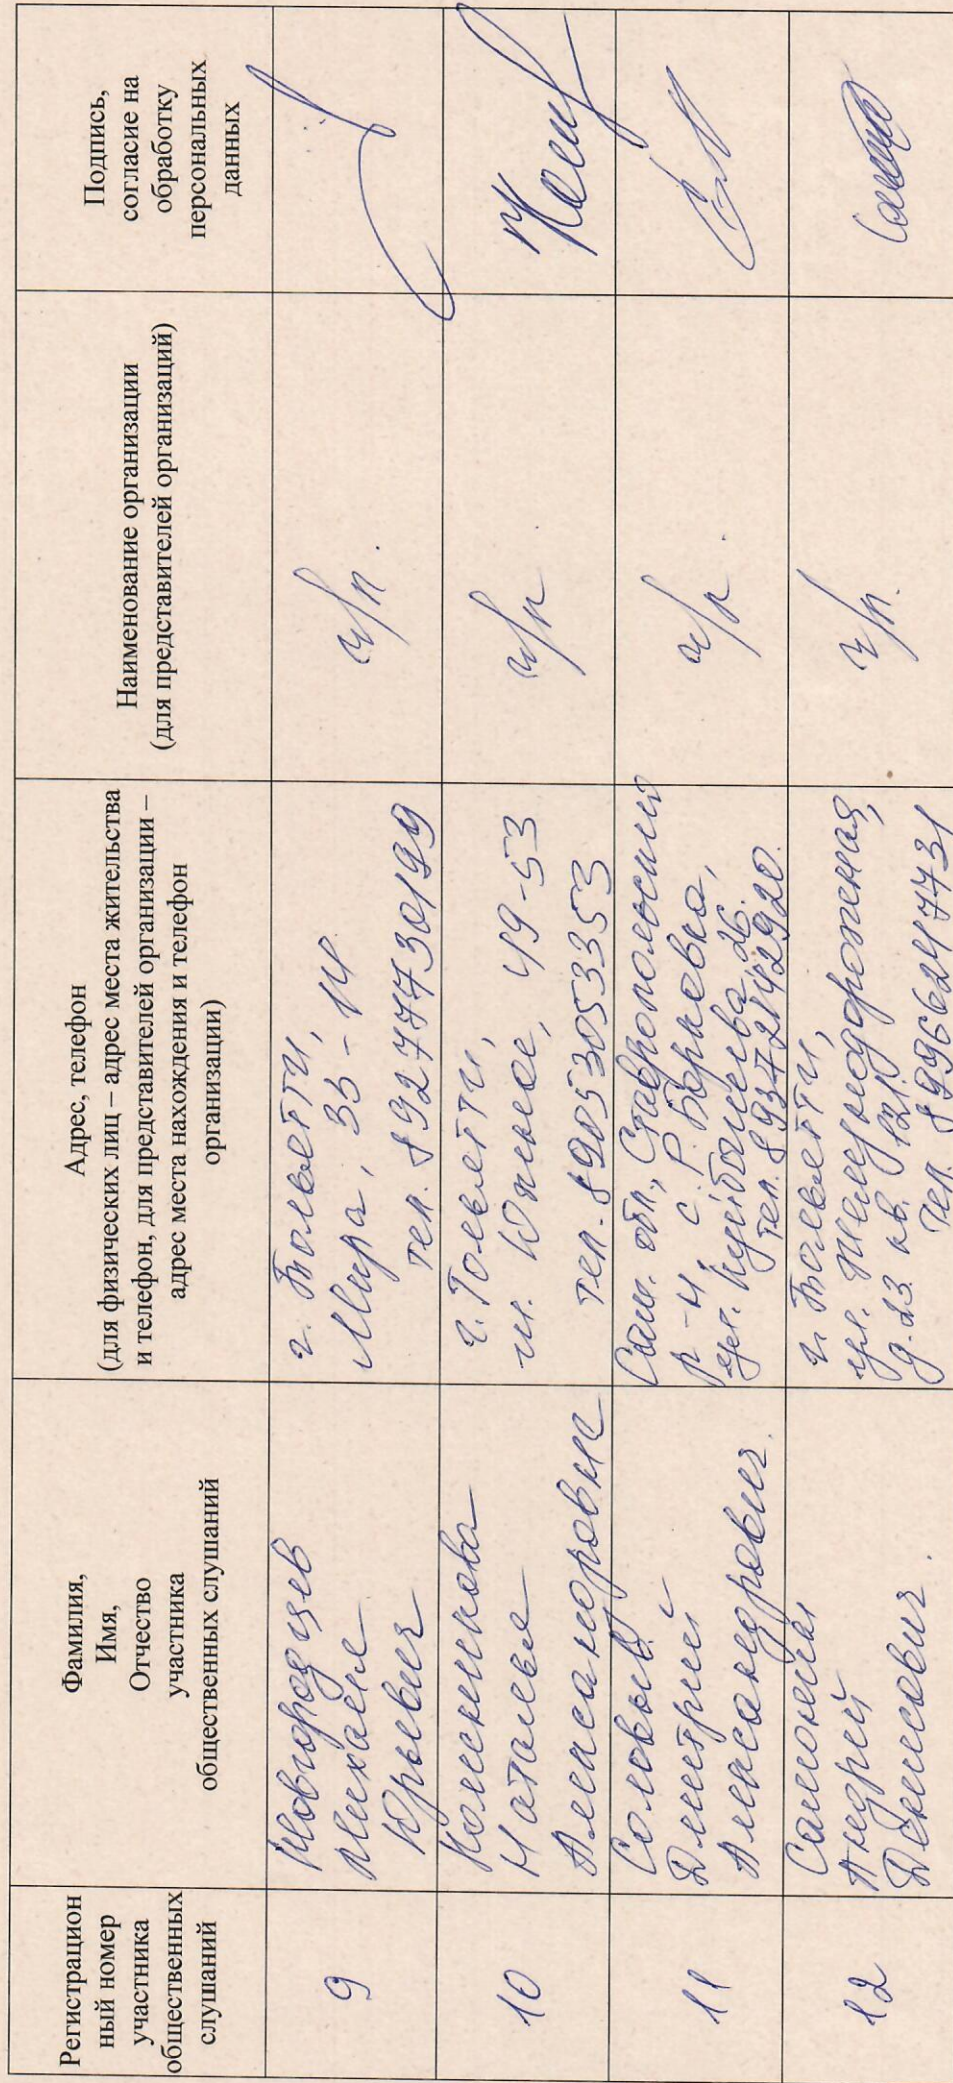 Регистрацион
ный номер
участника
общественных
слушаний
Фамилия,
Имя,
Отчество
участника
общественных слушаний
Адрес, телефон
(для физических лиц – адрес места жительства
и телефон, для представителей организации –
адрес места нахождения и телефон
организации)
Наименование организации
(для представителей организаций)
Подпись,
согласие на
обработку
персональных
данных
9
Новгородцев
Михаил
Юрьевич
г. Тольятти,
Мира, 35-14
тел. 89277730199
ч/л.
10
Колесникова
Наталья
Александровна
г. Тольятти,
49-53
тел. 89053053353
ч/л
11
Соловьев
Дмитрий
Александрович.
Сам. обл., Ставропольский
р-н, с. Р. Борковка,
ул. Куйбышева 26.
тел. 89372142920.
ч/л.
12
Самохин
Андрей
Денисович.
г. Тольятти,
ул. Железнодорожная,
д. 23 кв. 121,
Тел. 89966247731
ч/л.